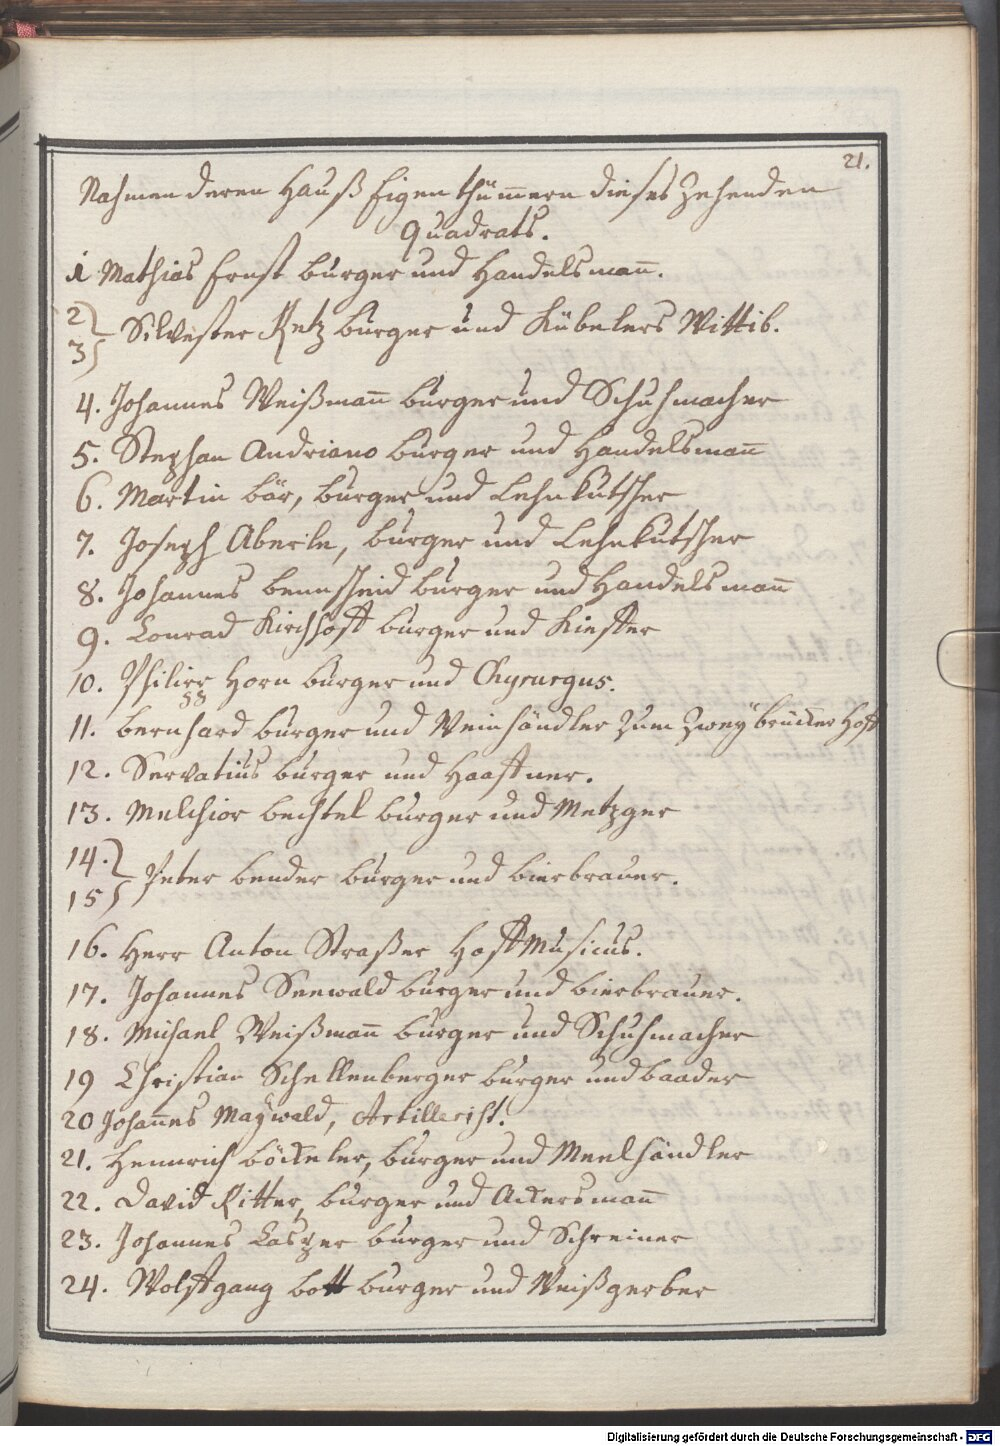 21.
Nahmen deren Hauß Eigenthümmern dieses Zehenden
Quadrats.
1 Mathias Ernst burger und Handelsmañ.
2
3 } Silvester Retz burger und Kübelers Wittib.
4. Johannes Weißmañ burger und Schuhmacher
5. Stephan Andriano burger und Handelsmañ
6. Martin bär, burger und Lehnkutscher
7. Joseph Aberle, burger und Lehnkutscher
8. Johannes bennscheid burger und Handelsmañ
9. Conrad Kirchhoff burger und Kieffer
10. Philipp Horn burger und Chyrurgus.
58
11. bernhard burger und Weinhändler zum Zweybrücker Hoff
12. Servatius burger und Haaffner.
13. Melchior bechtel burger und Metzger
14.
15 } Peter bender burger und bierbrauer.
16. Herr Anton Straßer Hoff Musicus.
17. Johannes Seewald burger und bierbrauer.
18. Michael Weißmañ burger und Schuhmacher
19 Christian Schellenberger burger und baader
20 Johañes Maywald, Artillerist.
21. Henrich böckeler, burger und Meelhändler
22. David Ritter, burger und Ackersmañ
23. Johannes Casper burger und Schreiner
24. Wolffgang bott burger und Weißgerber
Digitalisierung gefördert durch die Deutsche Forschungsgemeinschaft - DFG